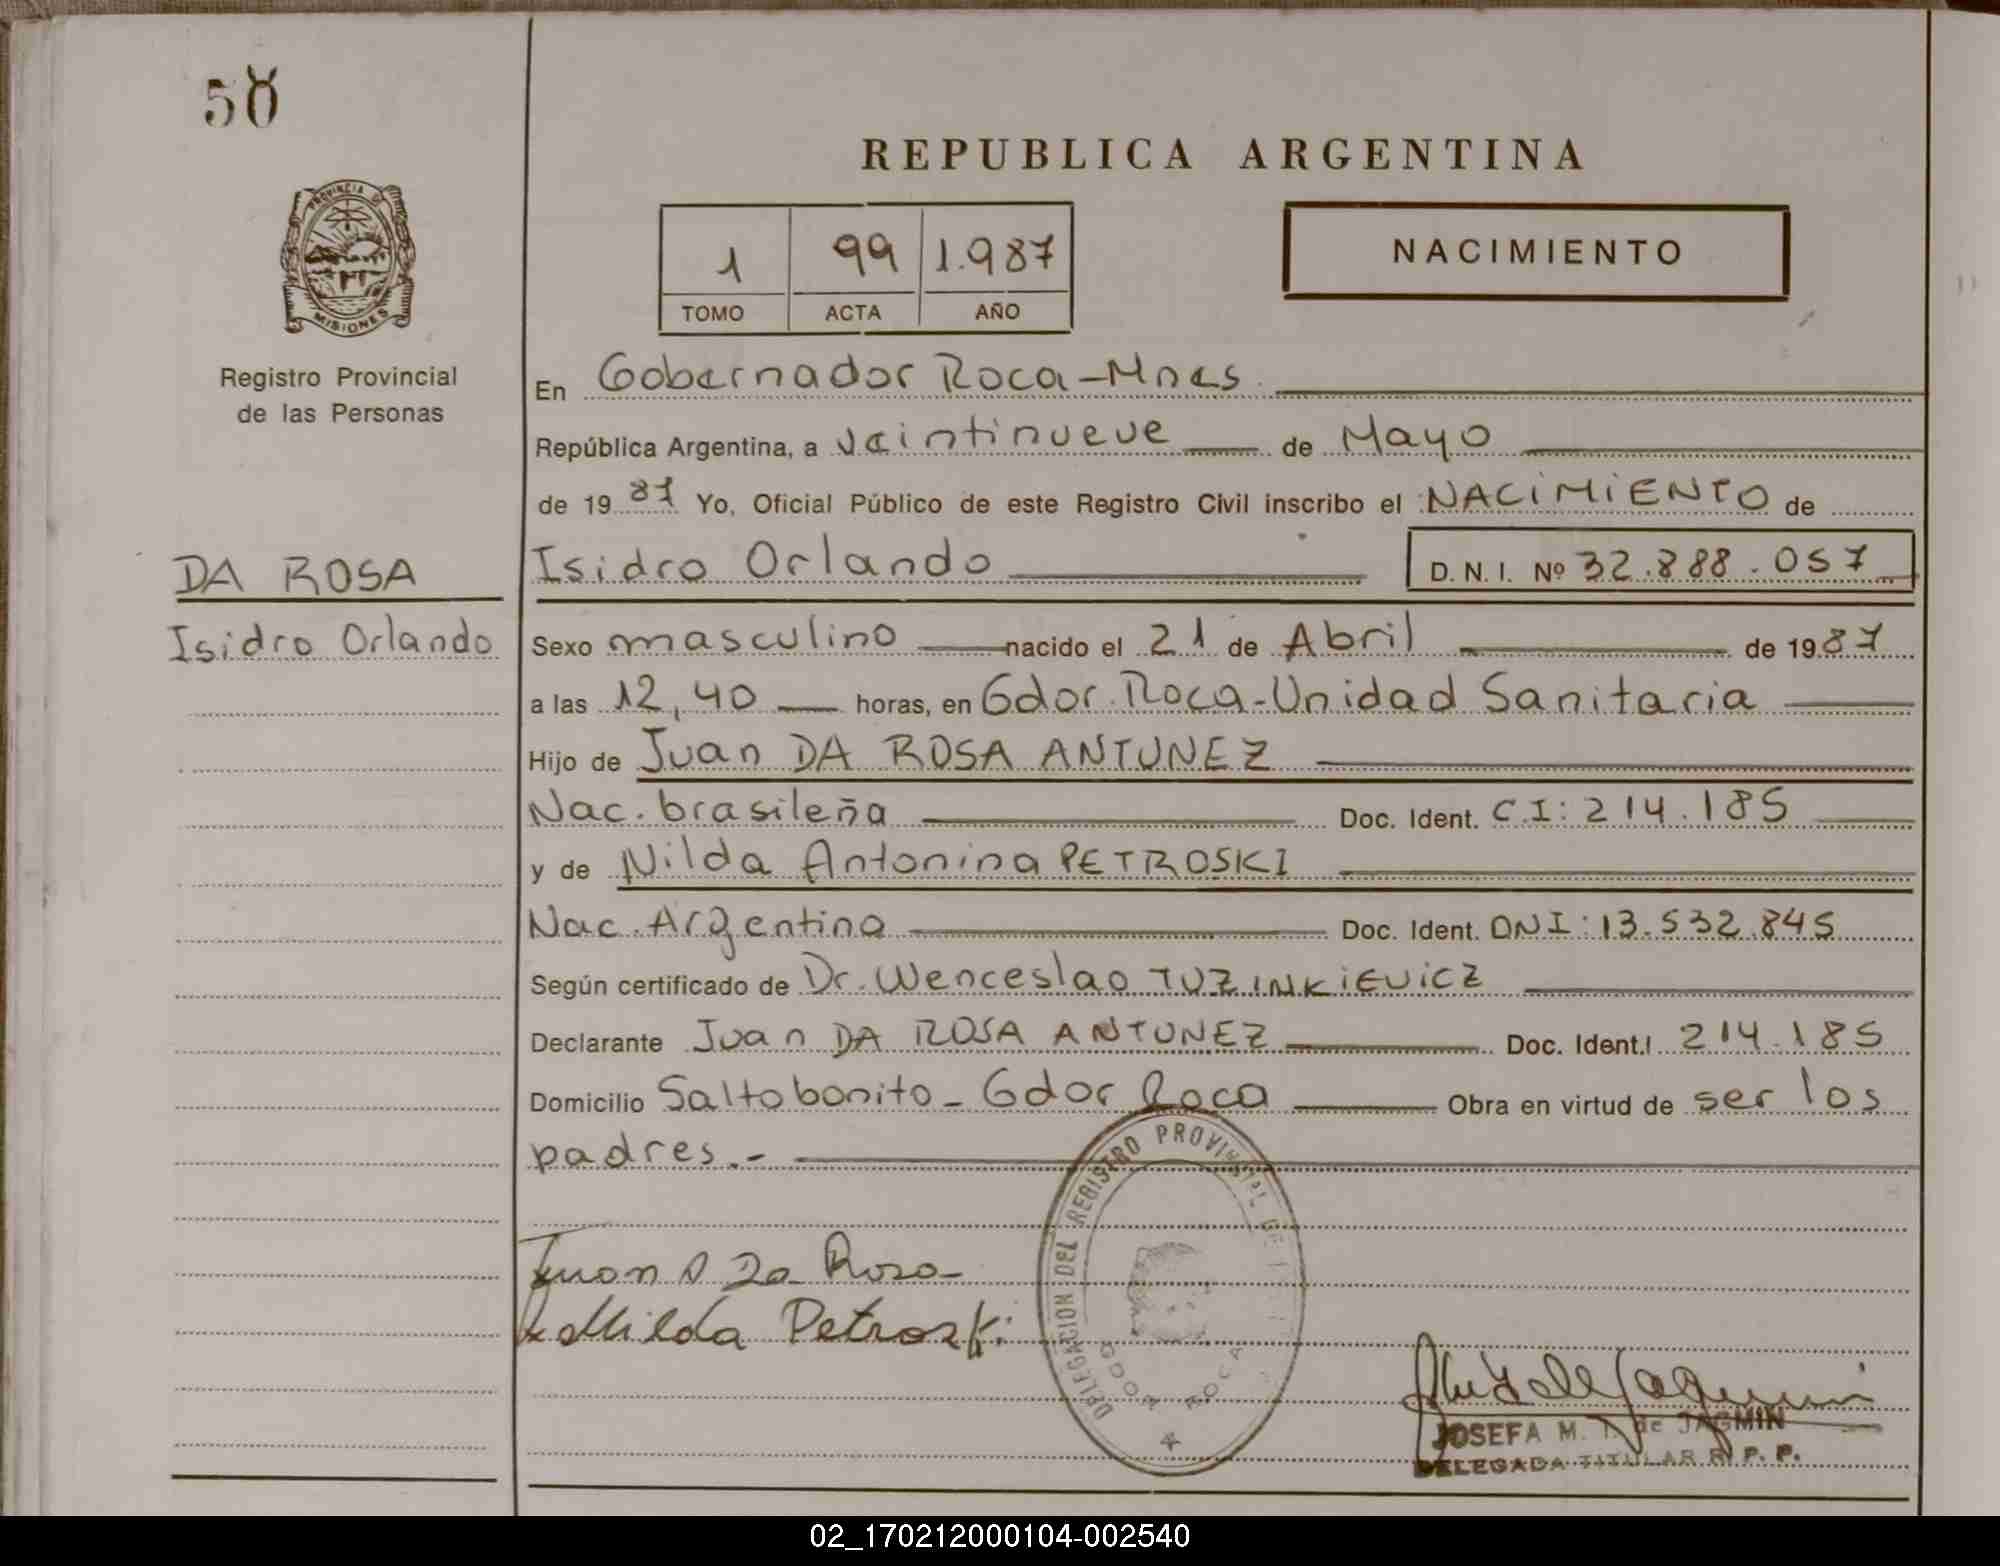 50
REPUBLICA ARGENTINA
PROVINCIA DE
MISIONES
1 99 1.987
TOMO ACTA AÑO
NACIMIENTO
Registro Provincial
de las Personas
En Gobernador Roca-Mnes.
República Argentina, a veintinueve de Mayo
de 1987 Yo, Oficial Público de este Registro Civil inscribo el NACIMIENTO de
DA ROSA
Isidro Orlando
Isidro Orlando D.N.I. Nº 32.888.057
Sexo masculino nacido el 21 de Abril de 1987
a las 12,40 horas, en Gdor. Roca-Unidad Sanitaria
Hijo de Juan DA ROSA ANTUNEZ
Nac. brasileña Doc. Ident. C.I: 214.185
y de Nilda Antonina PETROSKI
Nac. Argentina Doc. Ident. DNI: 13.532.845
Según certificado de Dr. Wenceslao TUZINKIEVICZ
Declarante Juan DA ROSA ANTUNEZ Doc. Ident.I 214.185
Domicilio Salto bonito - Gdor Roca Obra en virtud de ser los
padres.-
DELEGACION DEL REGISTRO PROVINCIAL DE
ROCA
Juan A Da Rosa
Nilda Petroski
JOSEFA M. T. de JAGMIN
DELEGADA TITULAR R. P. P.
02_170212000104-002540